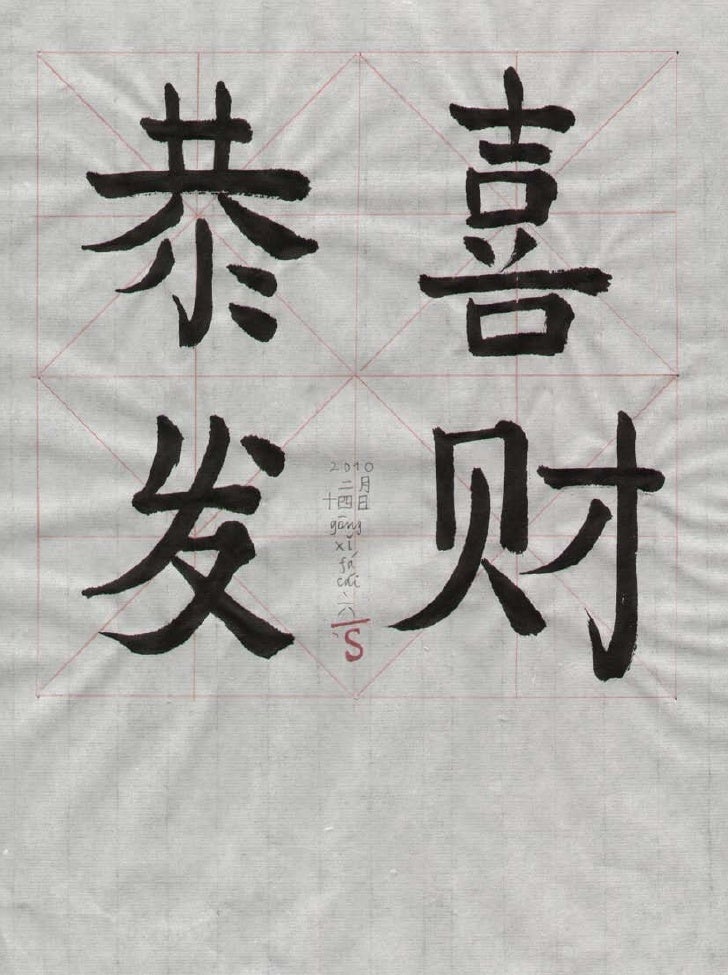 恭喜
发财
2010
二月
十四日
gōng
xǐ
fā
cái
S